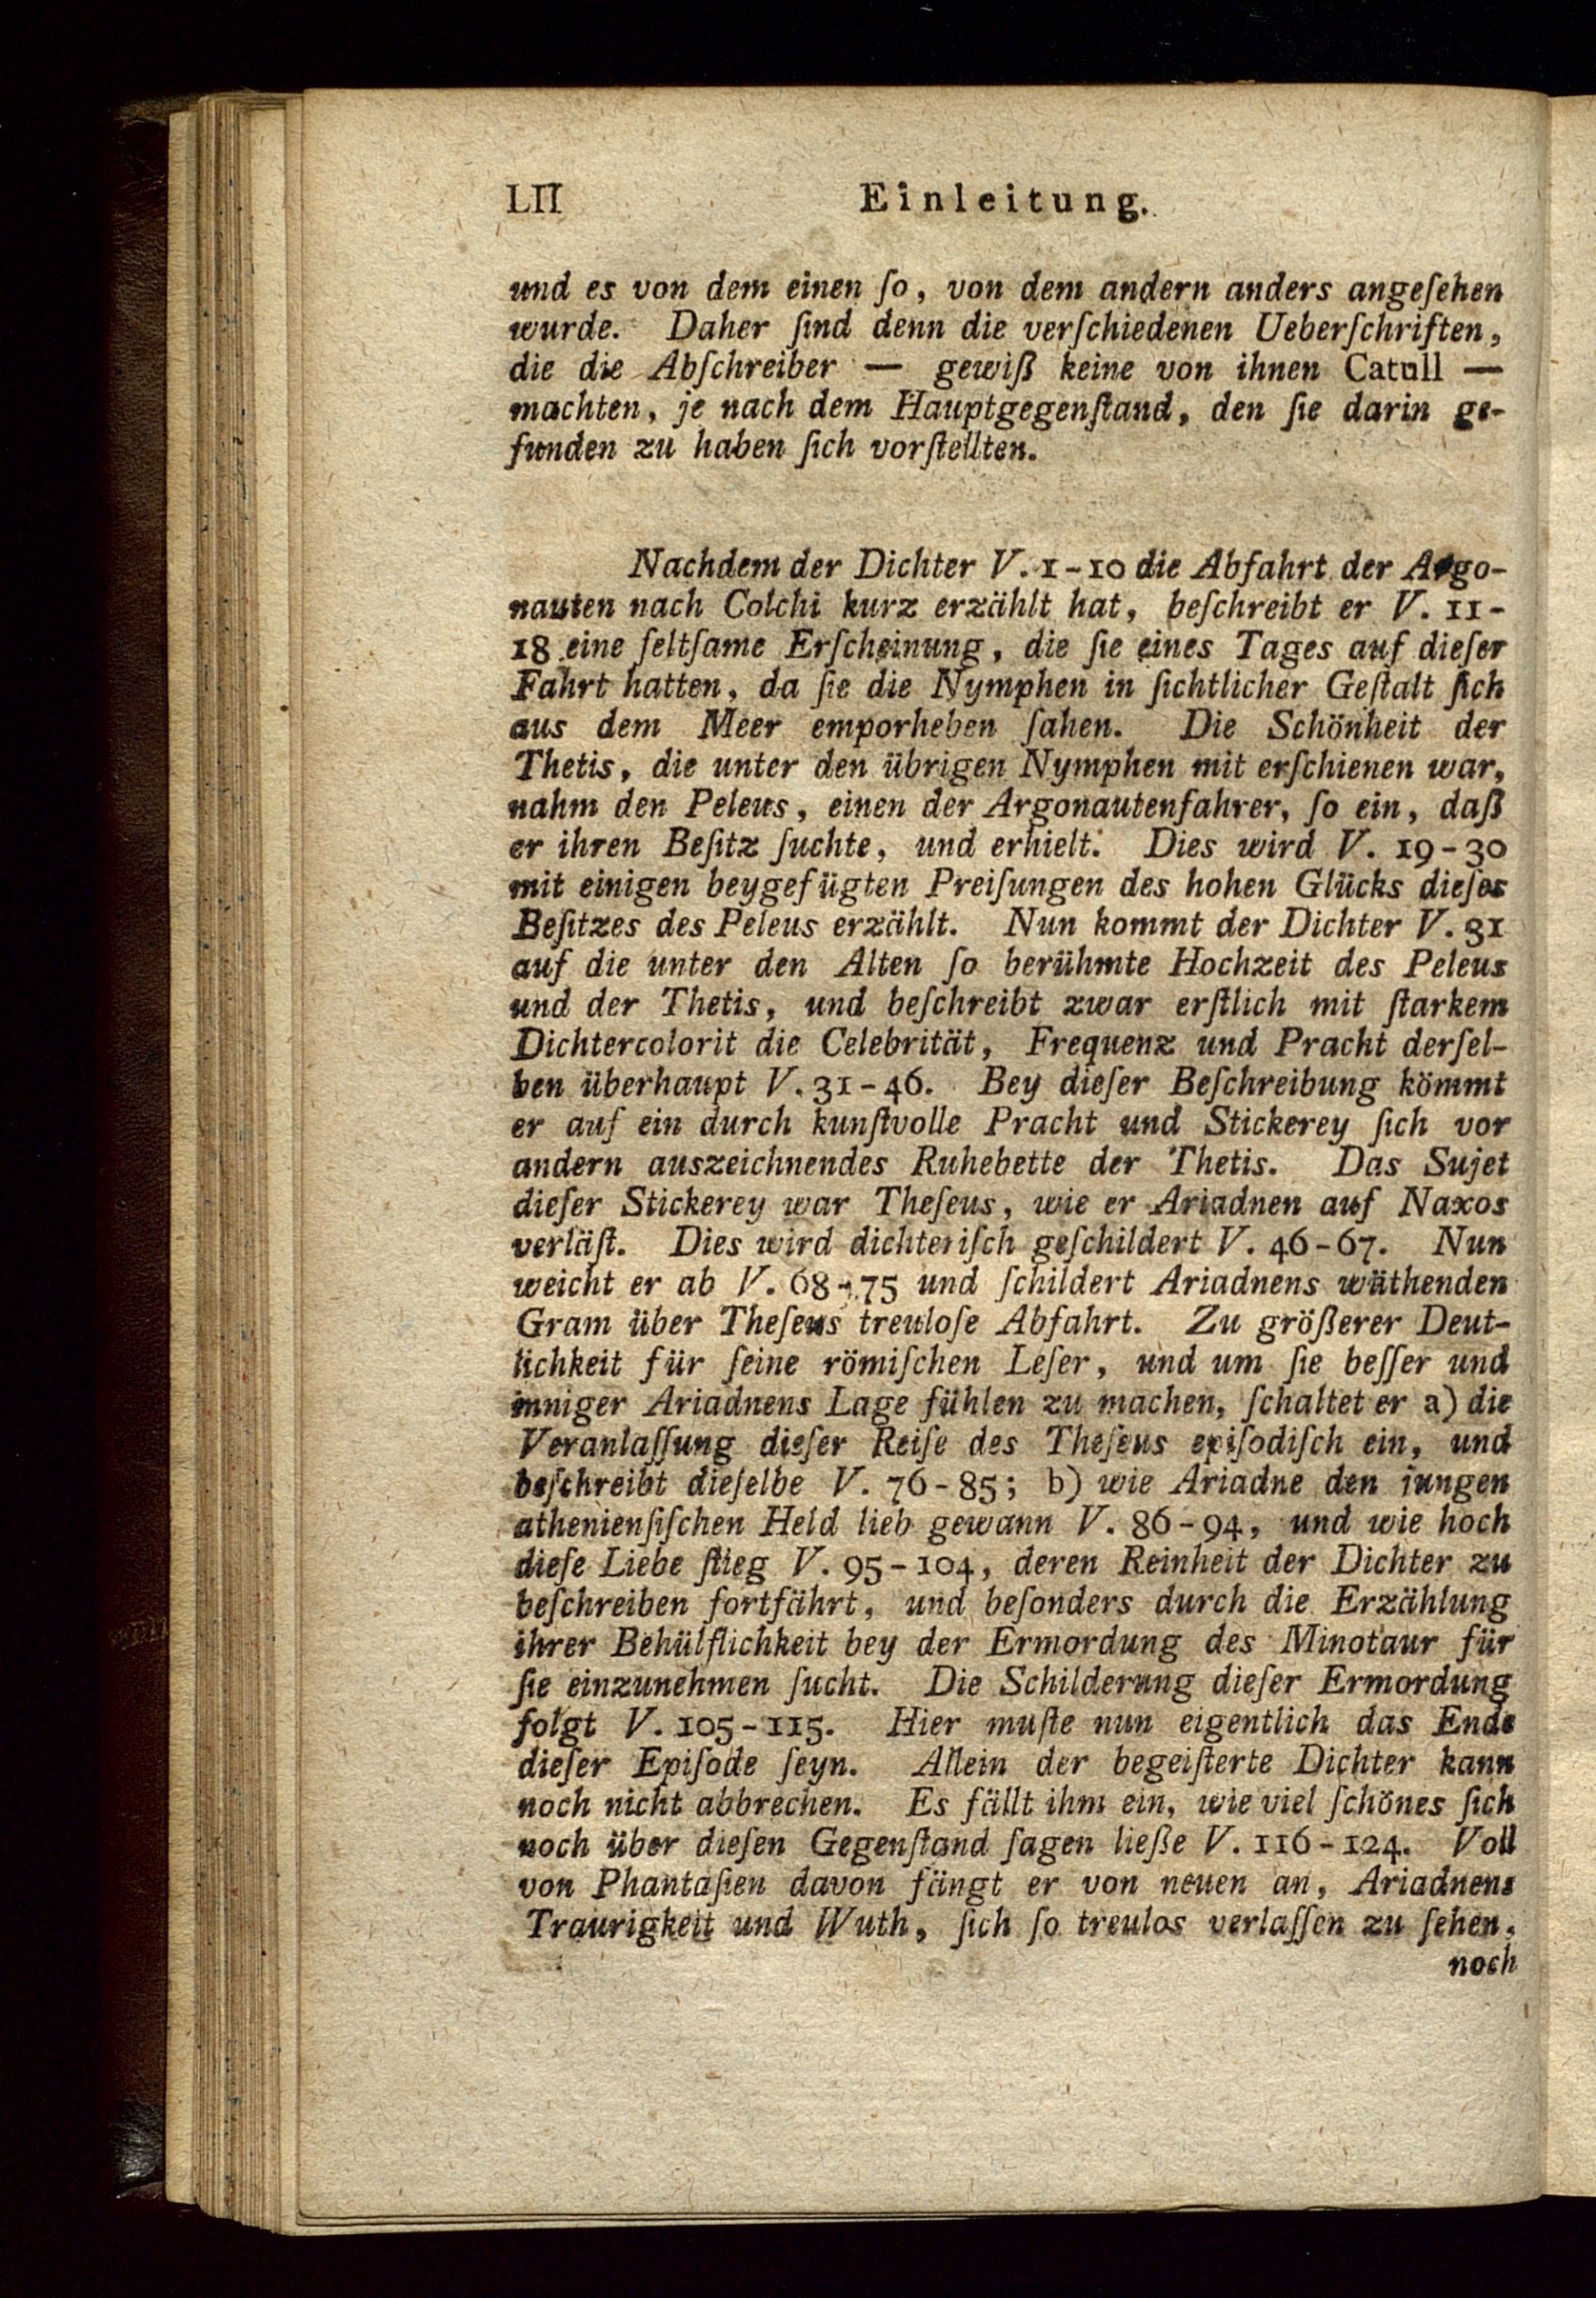 LII Einleitung.
und es von dem einen ſo, von dem andern anders angeſehen
wurde. Daher ſind denn die verſchiedenen Ueberſchriften,
die die Abſchreiber — gewiß keine von ihnen Catull —
machten, je nach dem Hauptgegenſtand, den ſie darin ge-
funden zu haben ſich vorſtellten.
Nachdem der Dichter V. 1-10 die Abfahrt der Argo-
nauten nach Colchi kurz erzählt hat, beſchreibt er V. 11-
18 eine ſeltſame Erſcheinung, die ſie eines Tages auf dieſer
Fahrt hatten, da ſie die Nymphen in ſichtlicher Geſtalt ſich
aus dem Meer emporheben ſahen. Die Schönheit der
Thetis, die unter den übrigen Nymphen mit erſchienen war,
nahm den Peleus, einen der Argonautenfahrer, ſo ein, daß
er ihren Beſitz ſuchte, und erhielt. Dies wird V. 19-30
mit einigen beygefügten Preiſungen des hohen Glücks dieſes
Beſitzes des Peleus erzählt. Nun kommt der Dichter V. 31
auf die unter den Alten ſo berühmte Hochzeit des Peleus
und der Thetis, und beſchreibt zwar erſtlich mit ſtarkem
Dichtercolorit die Celebrität, Frequenz und Pracht derſel-
ben überhaupt V. 31-46. Bey dieſer Beſchreibung kömmt
er auf ein durch kunſtvolle Pracht und Stickerey ſich vor
andern auszeichnendes Ruhebette der Thetis. Das Sujet
dieſer Stickerey war Theſeus, wie er Ariadnen auf Naxos
verläſt. Dies wird dichteriſch geſchildert V. 46-67. Nun
weicht er ab V. 68-75 und ſchildert Ariadnens wüthenden
Gram über Theſeus treuloſe Abfahrt. Zu größerer Deut-
lichkeit für ſeine römiſchen Leſer, und um ſie beſſer und
inniger Ariadnens Lage fühlen zu machen, ſchaltet er a) die
Veranlaſſung dieſer Reiſe des Theſeus epiſodiſch ein, und
beſchreibt dieſelbe V. 76-85; b) wie Ariadne den jungen
athenienſiſchen Held lieb gewann V. 86-94, und wie hoch
dieſe Liebe ſtieg V. 95-104, deren Reinheit der Dichter zu
beſchreiben fortfährt, und beſonders durch die Erzählung
ihrer Behülflichkeit bey der Ermordung des Minotaur für
ſie einzunehmen ſucht. Die Schilderung dieſer Ermordung
folgt V. 105-115. Hier muſte nun eigentlich das Ende
dieſer Epiſode ſeyn. Allein der begeiſterte Dichter kann
noch nicht abbrechen. Es fällt ihm ein, wie viel ſchönes ſich
noch über dieſen Gegenſtand ſagen ließe V. 116-124. Voll
von Phantaſien davon fängt er von neuen an, Ariadnens
Traurigkeit und Wuth, ſich ſo treulos verlaſſen zu ſehen,
noch